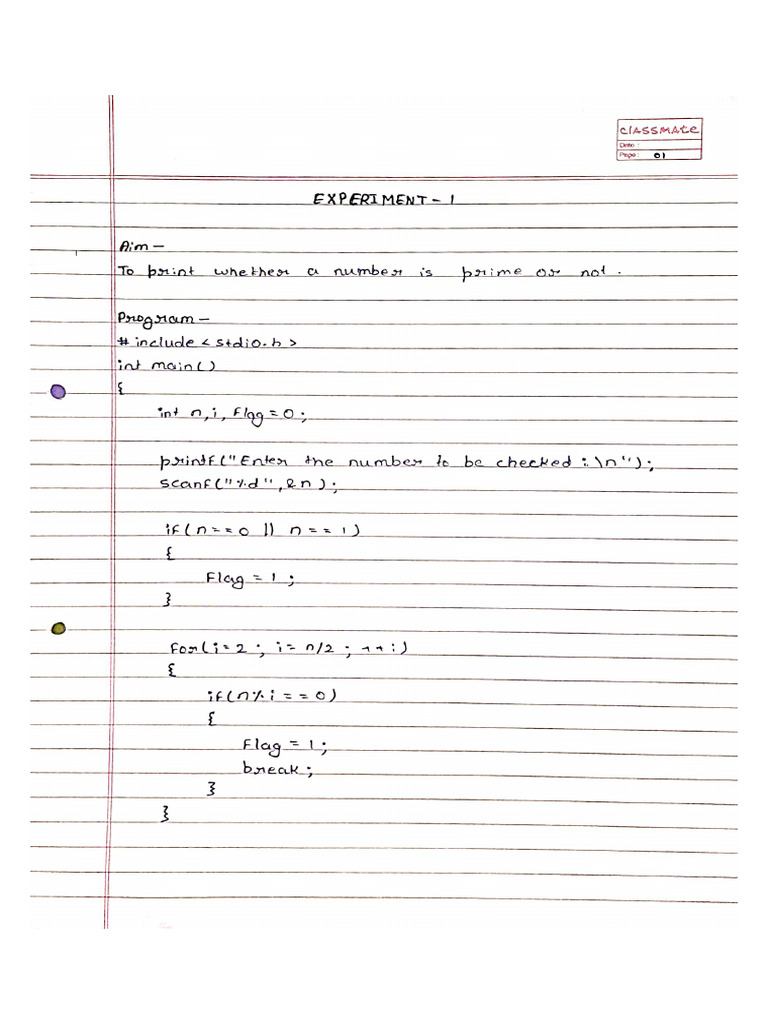 classmate
Date :
Page : 01
EXPERIMENT - 1
Aim -
To print whether a number is prime or not.
Program -
# include < stdio.h >
int main()
{
int n, i, Flag = 0;
printf("Enter the number to be checked :\n");
scanf("%d", &n);
if(n == 0 || n == 1)
{
Flag = 1 ;
}
for(i = 2 ; i = n/2 ; ++i)
{
if(n % i == 0)
{
Flag = 1;
break;
}
}